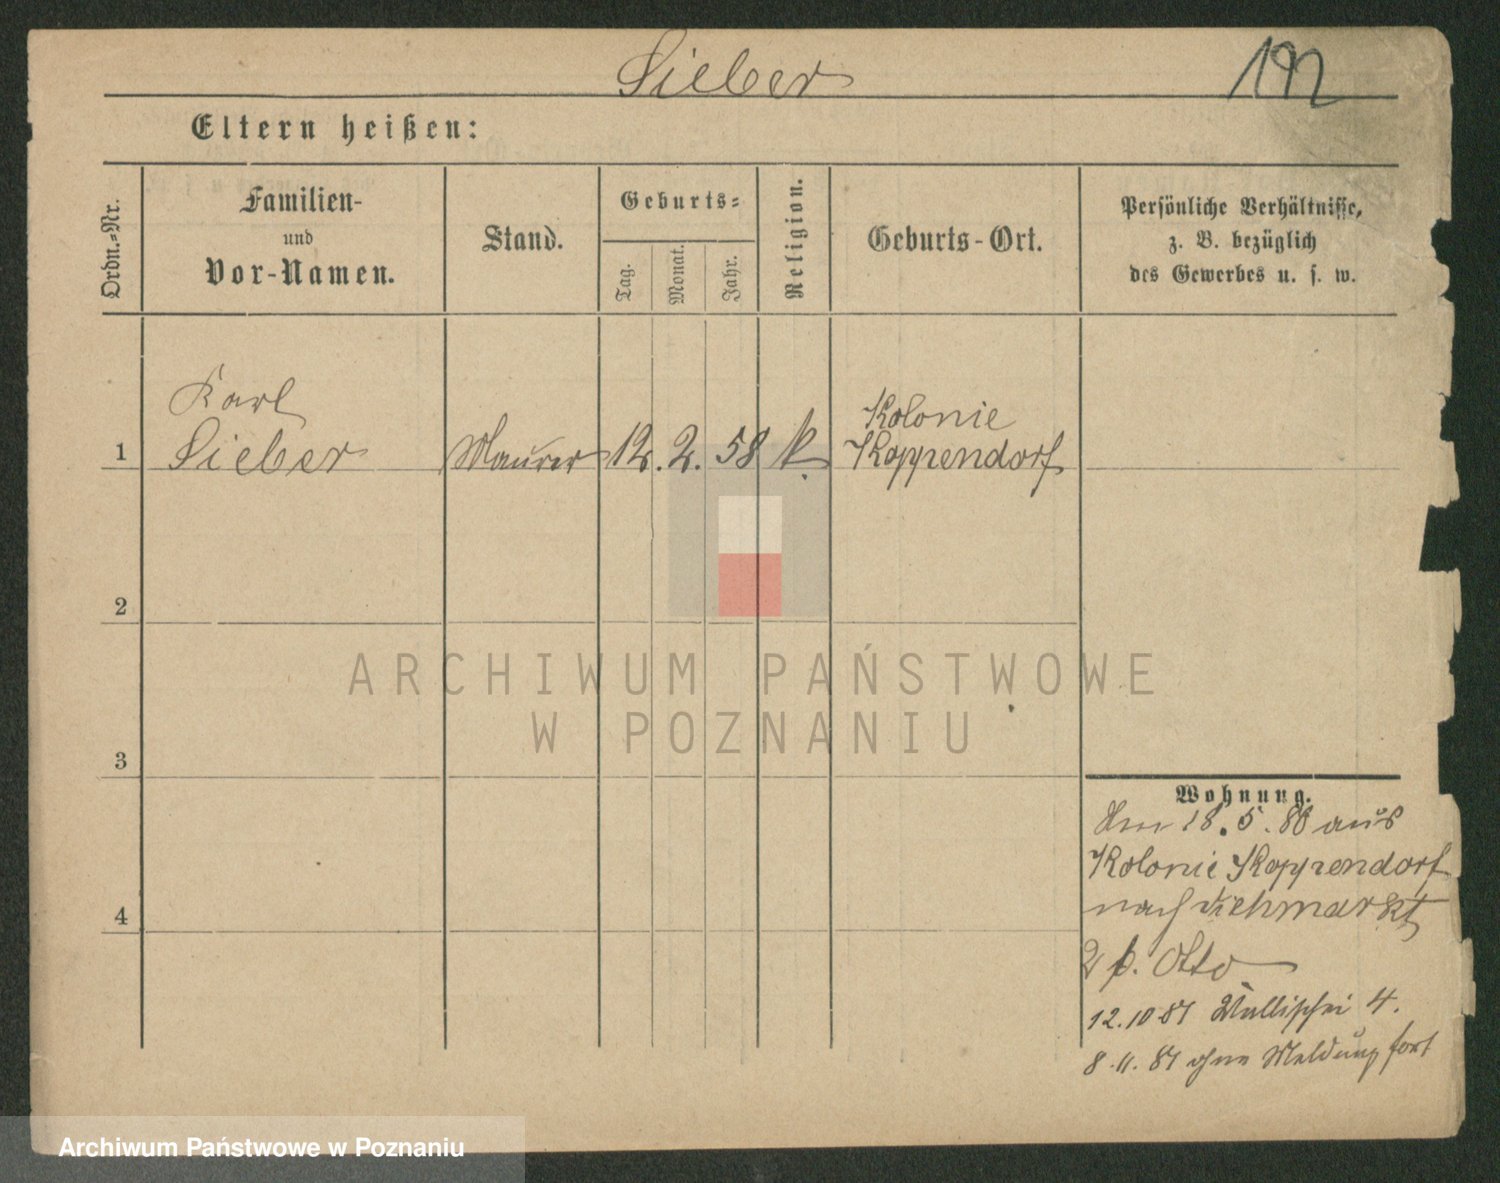 Sieber
192
Eltern heißen:
Ordn.-Nr.
Familien-
und
Vor-Namen.
Stand.
Geburts-
Tag.
Monat.
Jahr.
Religion.
Geburts-Ort.
Persönliche Verhältnisse,
z. B. bezüglich
des Gewerbes u. s. w.
1
Karl
Sieber
Maurer
12. 2. 58
k.
Kolonie
Koppendorf
2
3
4
Wohnung.
18. 5. 86 aus
Kolonie Koppendorf
nach Viehmarkt
2 b. Otto
12.10 87 Wallischei 4.
8.11. 87 ohne Meldung fort
ARCHIWUM PAŃSTWOWE
W POZNANIU
Archiwum Państwowe w Poznaniu